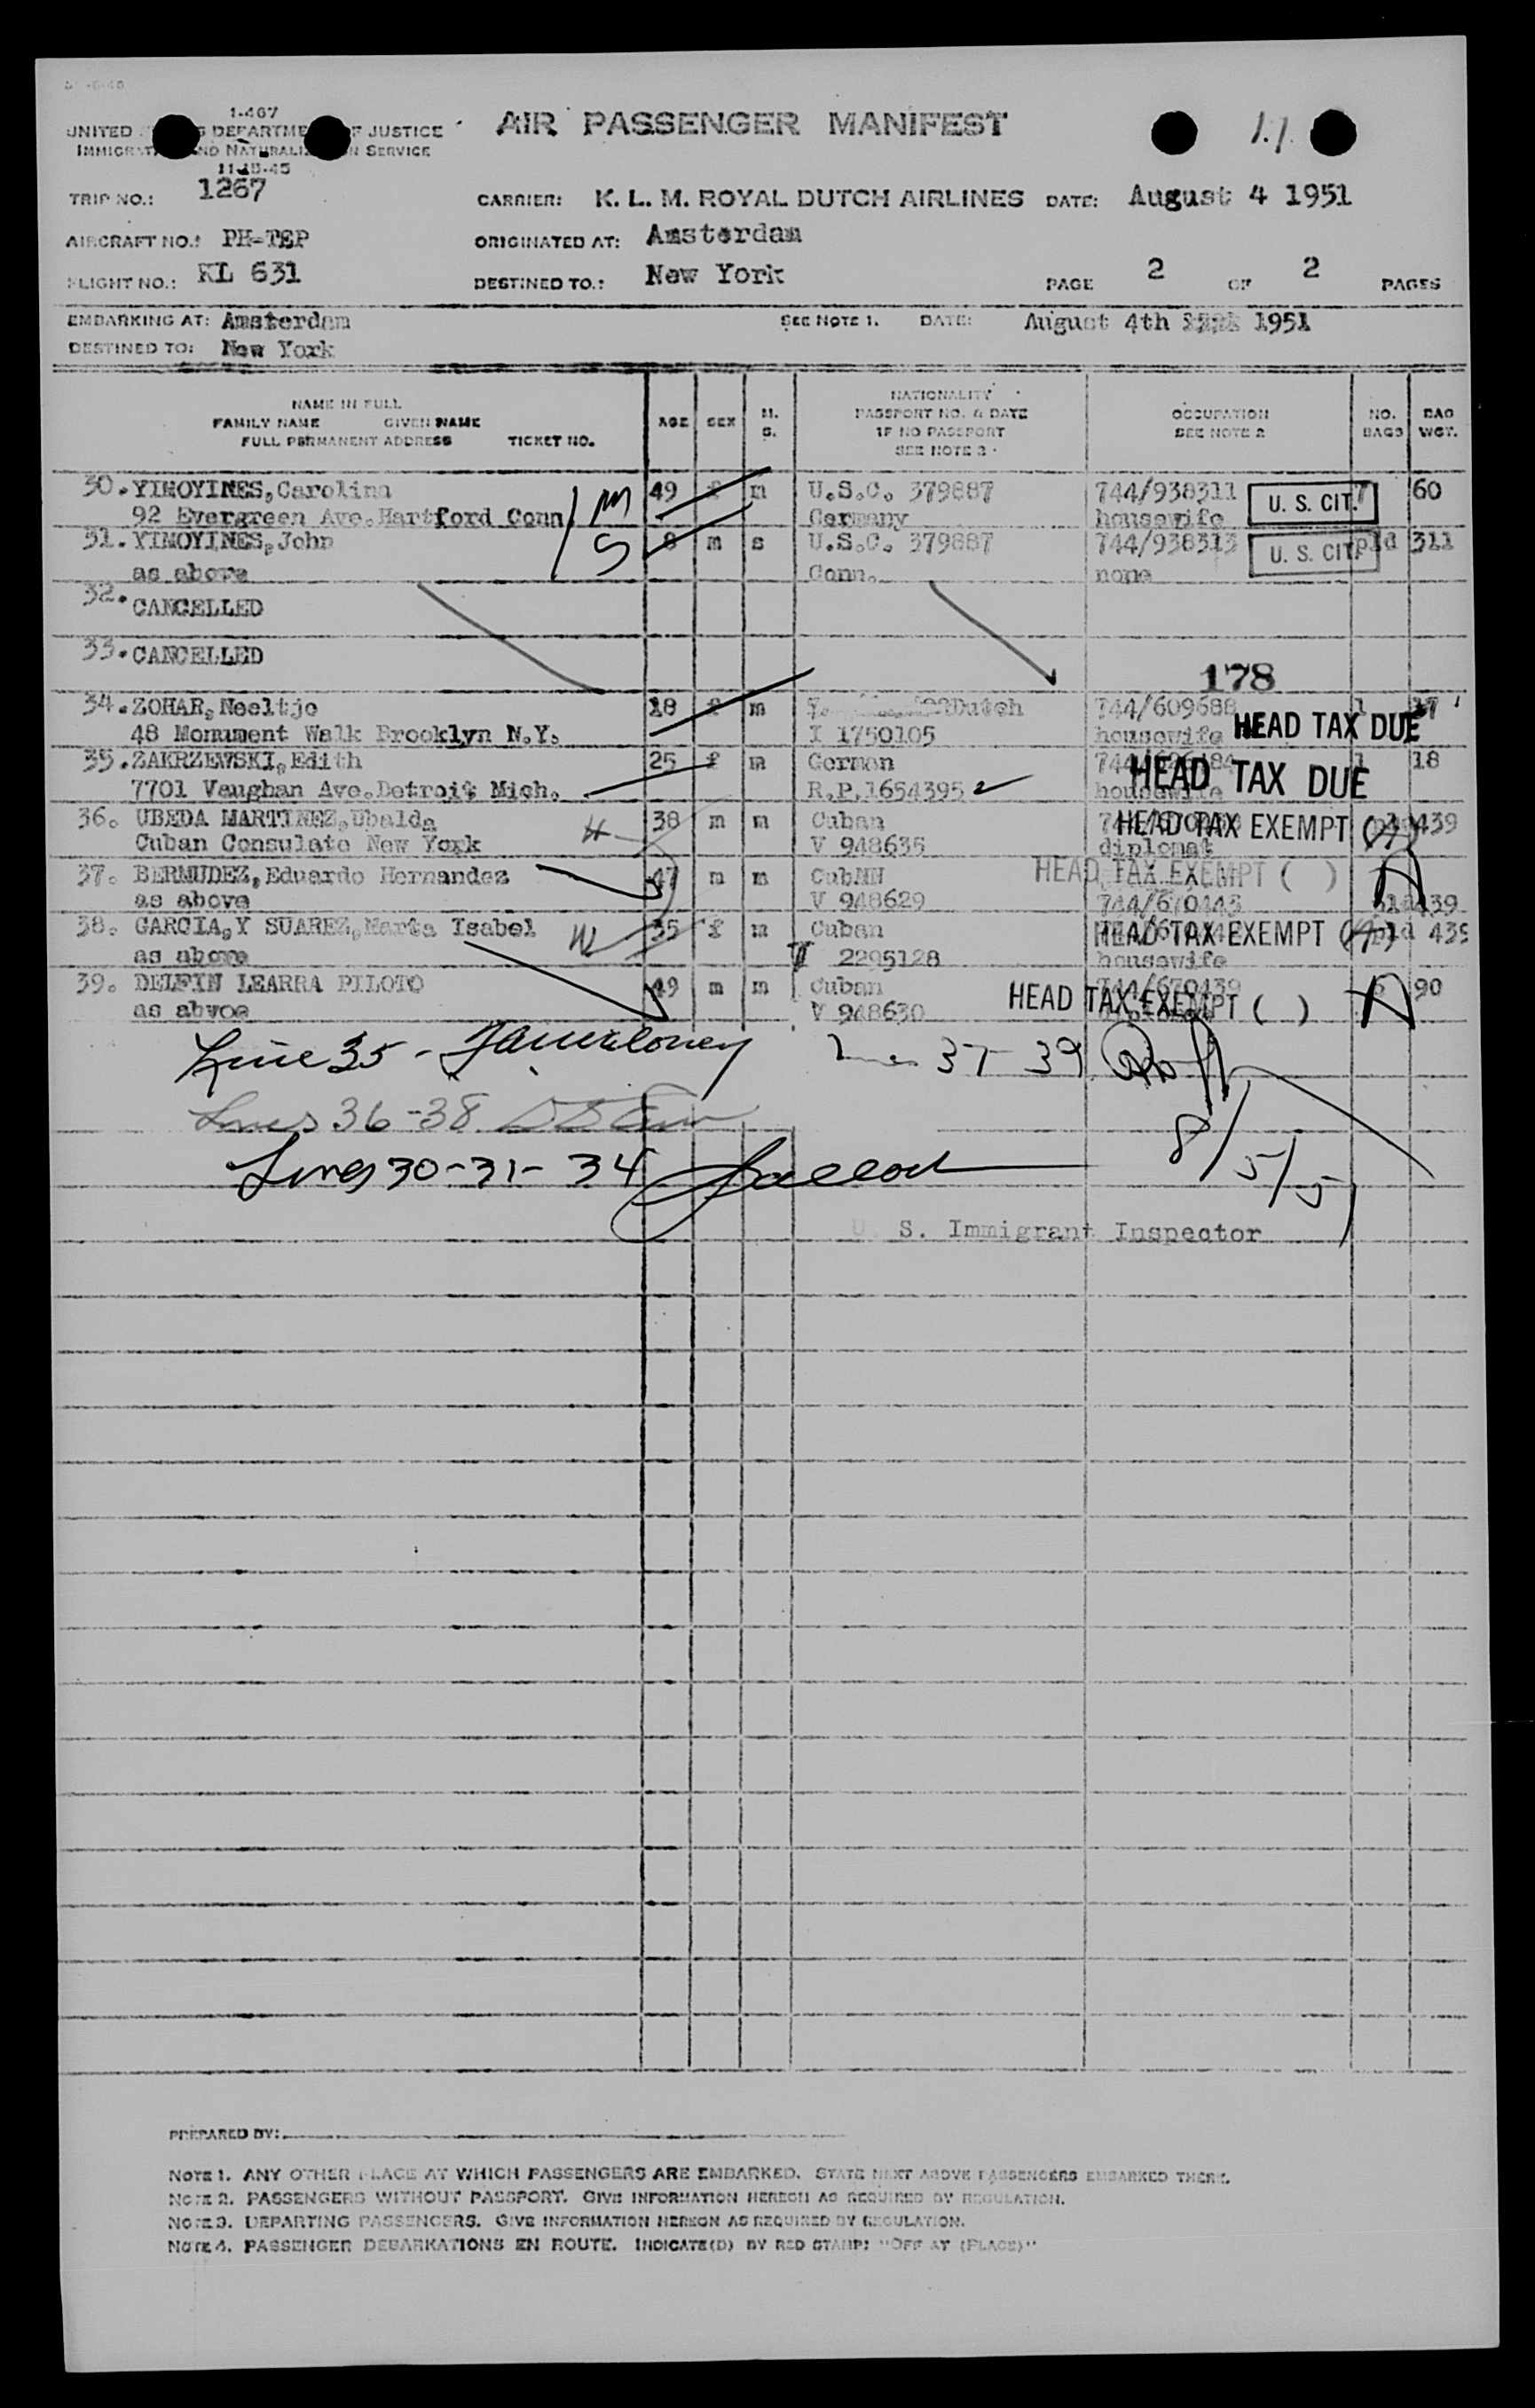 1-467
UNITED DEPARTME F JUSTICE
IMMIGRAT AND NATURALIZ N SERVICE
11-15-45
AIR PASSENGER MANIFEST
TRIP NO.: 1267 CARRIER: K. L. M. ROYAL DUTCH AIRLINES DATE: August 4 1951
AIRCRAFT NO.: PH-TEP ORIGINATED AT: Amsterdam
FLIGHT NO.: KL 631 DESTINED TO.: New York PAGE 2 OF 2 PAGES
EMBARKING AT: Amsterdam SEE NOTE 1. DATE: August 4th 1951
DESTINED TO: New York
NAME IN FULL
FAMILY NAME GIVEN NAME
FULL PERMANENT ADDRESS TICKET NO.
AGE SEX M. S.
NATIONALITY
PASSPORT NO. & DATE
IF NO PASSPORT
SEE NOTE 3
OCCUPATION
SEE NOTE 2
NO. BAGS
BAG WGT.
30. YIMOYINES, Carolina 49 f m U.S.C. 379887 744/938311 U. S. CIT. 7 60
92 Evergreen Ave. Hartford Conn. M Germany housewife
31. YIMOYINES, John S 8 m s U.S.C. 379887 744/938313 U. S. CIT. pld 311
as above Conn. none
32. CANCELLED
33. CANCELLED
178
34. ZOHAR, Neeltje 18 f m Dutch 744/609688 1 17
48 Monument Walk Brooklyn N.Y. I 1750105 housewife HEAD TAX DUE
35. ZAKRZEWSKI, Edith 25 f m German 1 18
7701 Vaughan Ave. Detroit Mich. R.P. 1654395 housewife HEAD TAX DUE
36. UBEDA MARTINEZ, Ubalda 38 m m Cuban HEAD TAX EXEMPT (A) 439
Cuban Consulate New York V 948635 diplomat
37. BERMUDEZ, Eduardo Hernandez 47 m m CubNN HEAD TAX EXEMPT ( ) A
as above V 948629 744/670443 pld 439
38. GARCIA, Y SUAREZ, Marta Isabel 35 f m Cuban HEAD TAX EXEMPT (A) pld 439
as above 2295128 housewife
39. DELFIN LEARRA PILOTO 49 m m Cuban 744/670439 90
as abvoe V 948630 HEAD TAX EXEMPT ( ) A
Line 35 -
Lines 37 - 39
Lines 36-38
8/5/51
Lines 30-31- 34
U. S. Immigrant Inspector
PREPARED BY:
NOTE 1. ANY OTHER PLACE AT WHICH PASSENGERS ARE EMBARKED. STATE NEXT ABOVE PASSENGERS EMBARKED THERE.
NOTE 2. PASSENGERS WITHOUT PASSPORT. GIVE INFORMATION HEREON AS REQUIRED BY REGULATION.
NOTE 3. DEPARTING PASSENGERS. GIVE INFORMATION HEREON AS REQUIRED BY REGULATION.
NOTE 4. PASSENGER DEBARKATIONS EN ROUTE. INDICATE(D) BY RED STAMP: "OFF AT (PLACE)"